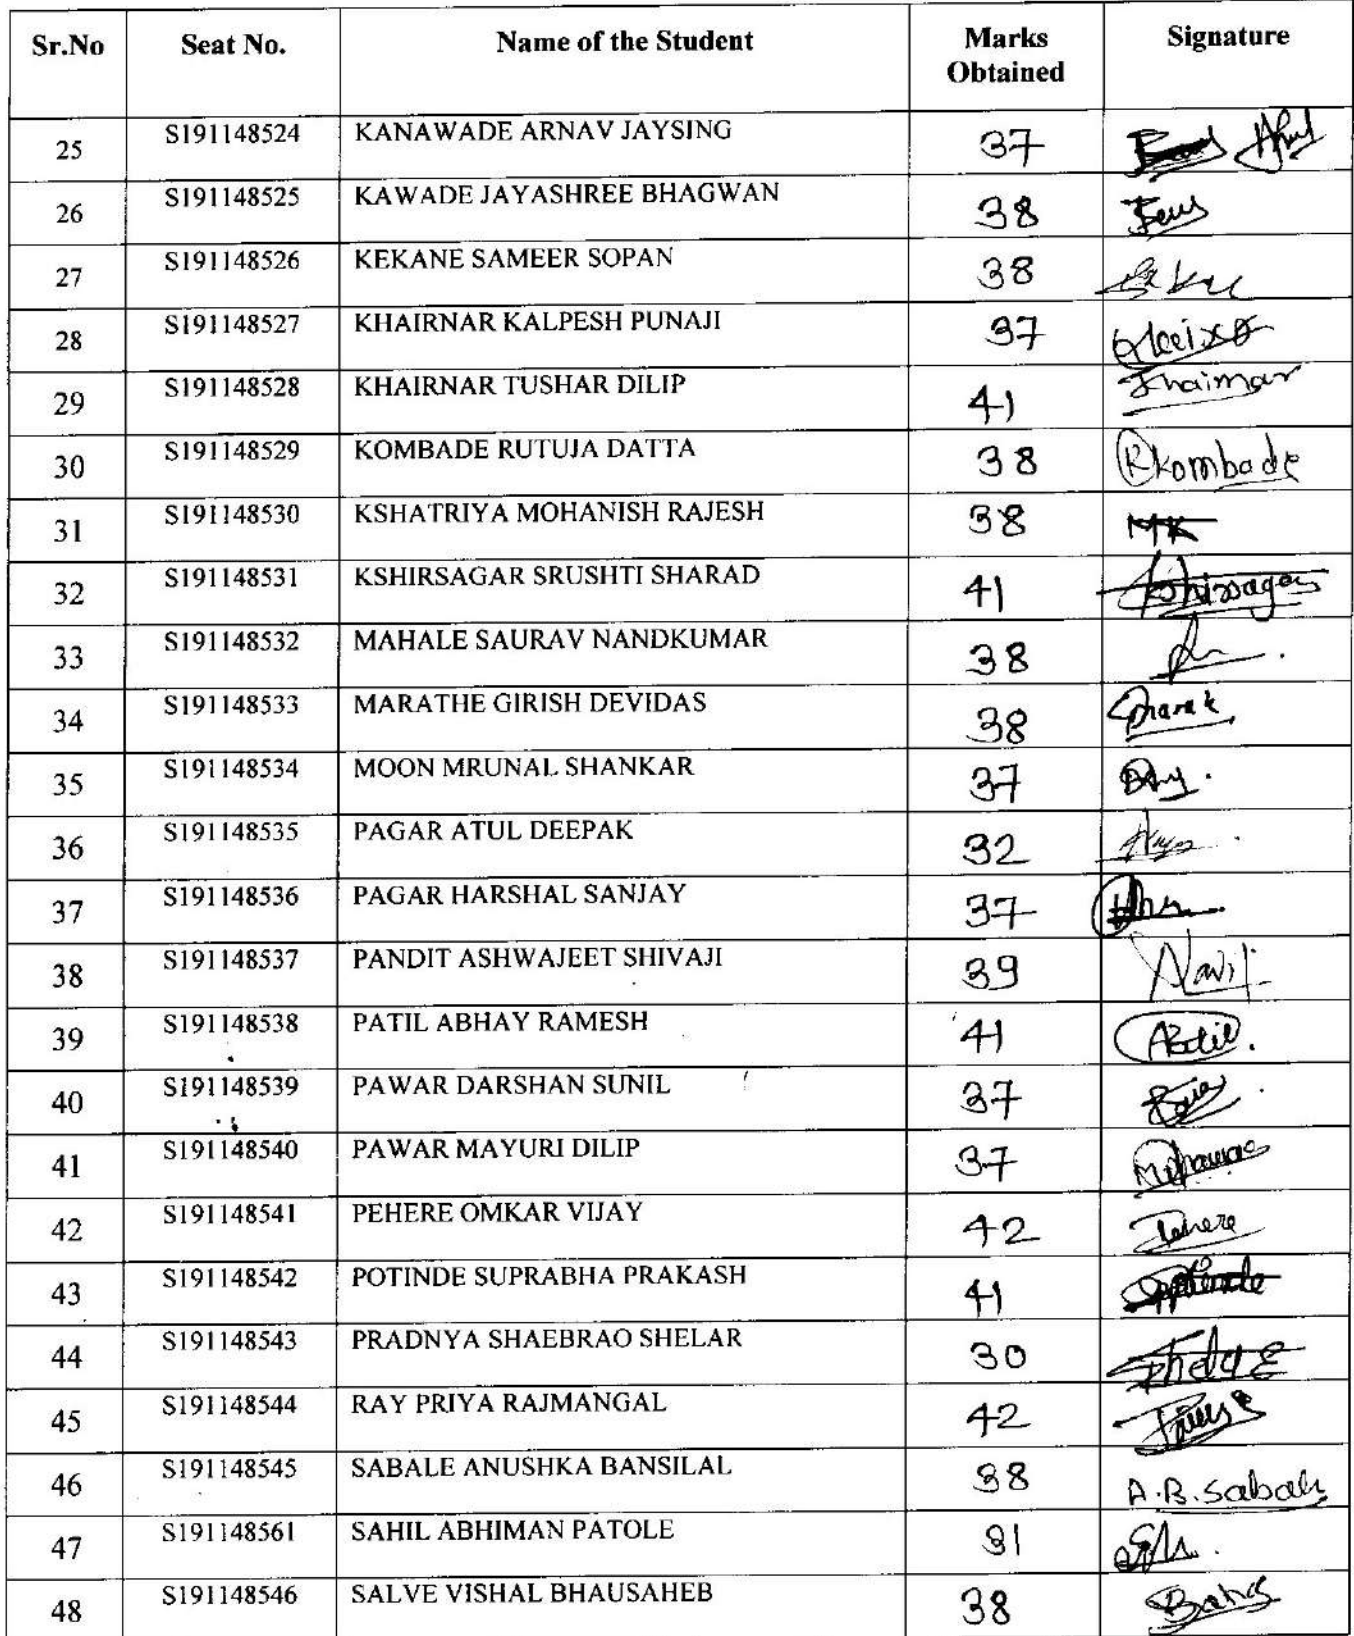 Sr.No Seat No. Name of the Student Marks Obtained Signature
25 S191148524 KANAWADE ARNAV JAYSING 37
26 S191148525 KAWADE JAYASHREE BHAGWAN 38
27 S191148526 KEKANE SAMEER SOPAN 38
28 S191148527 KHAIRNAR KALPESH PUNAJI 37
29 S191148528 KHAIRNAR TUSHAR DILIP 41
30 S191148529 KOMBADE RUTUJA DATTA 38 Rkombade
31 S191148530 KSHATRIYA MOHANISH RAJESH 38 MK
32 S191148531 KSHIRSAGAR SRUSHTI SHARAD 41
33 S191148532 MAHALE SAURAV NANDKUMAR 38
34 S191148533 MARATHE GIRISH DEVIDAS 38
35 S191148534 MOON MRUNAL SHANKAR 37
36 S191148535 PAGAR ATUL DEEPAK 32
37 S191148536 PAGAR HARSHAL SANJAY 37
38 S191148537 PANDIT ASHWAJEET SHIVAJI 39
39 S191148538 PATIL ABHAY RAMESH 41
40 S191148539 PAWAR DARSHAN SUNIL 37
41 S191148540 PAWAR MAYURI DILIP 37
42 S191148541 PEHERE OMKAR VIJAY 42
43 S191148542 POTINDE SUPRABHA PRAKASH 41
44 S191148543 PRADNYA SHAEBRAO SHELAR 30
45 S191148544 RAY PRIYA RAJMANGAL 42
46 S191148545 SABALE ANUSHKA BANSILAL 38
47 S191148561 SAHIL ABHIMAN PATOLE 31
48 S191148546 SALVE VISHAL BHAUSAHEB 38